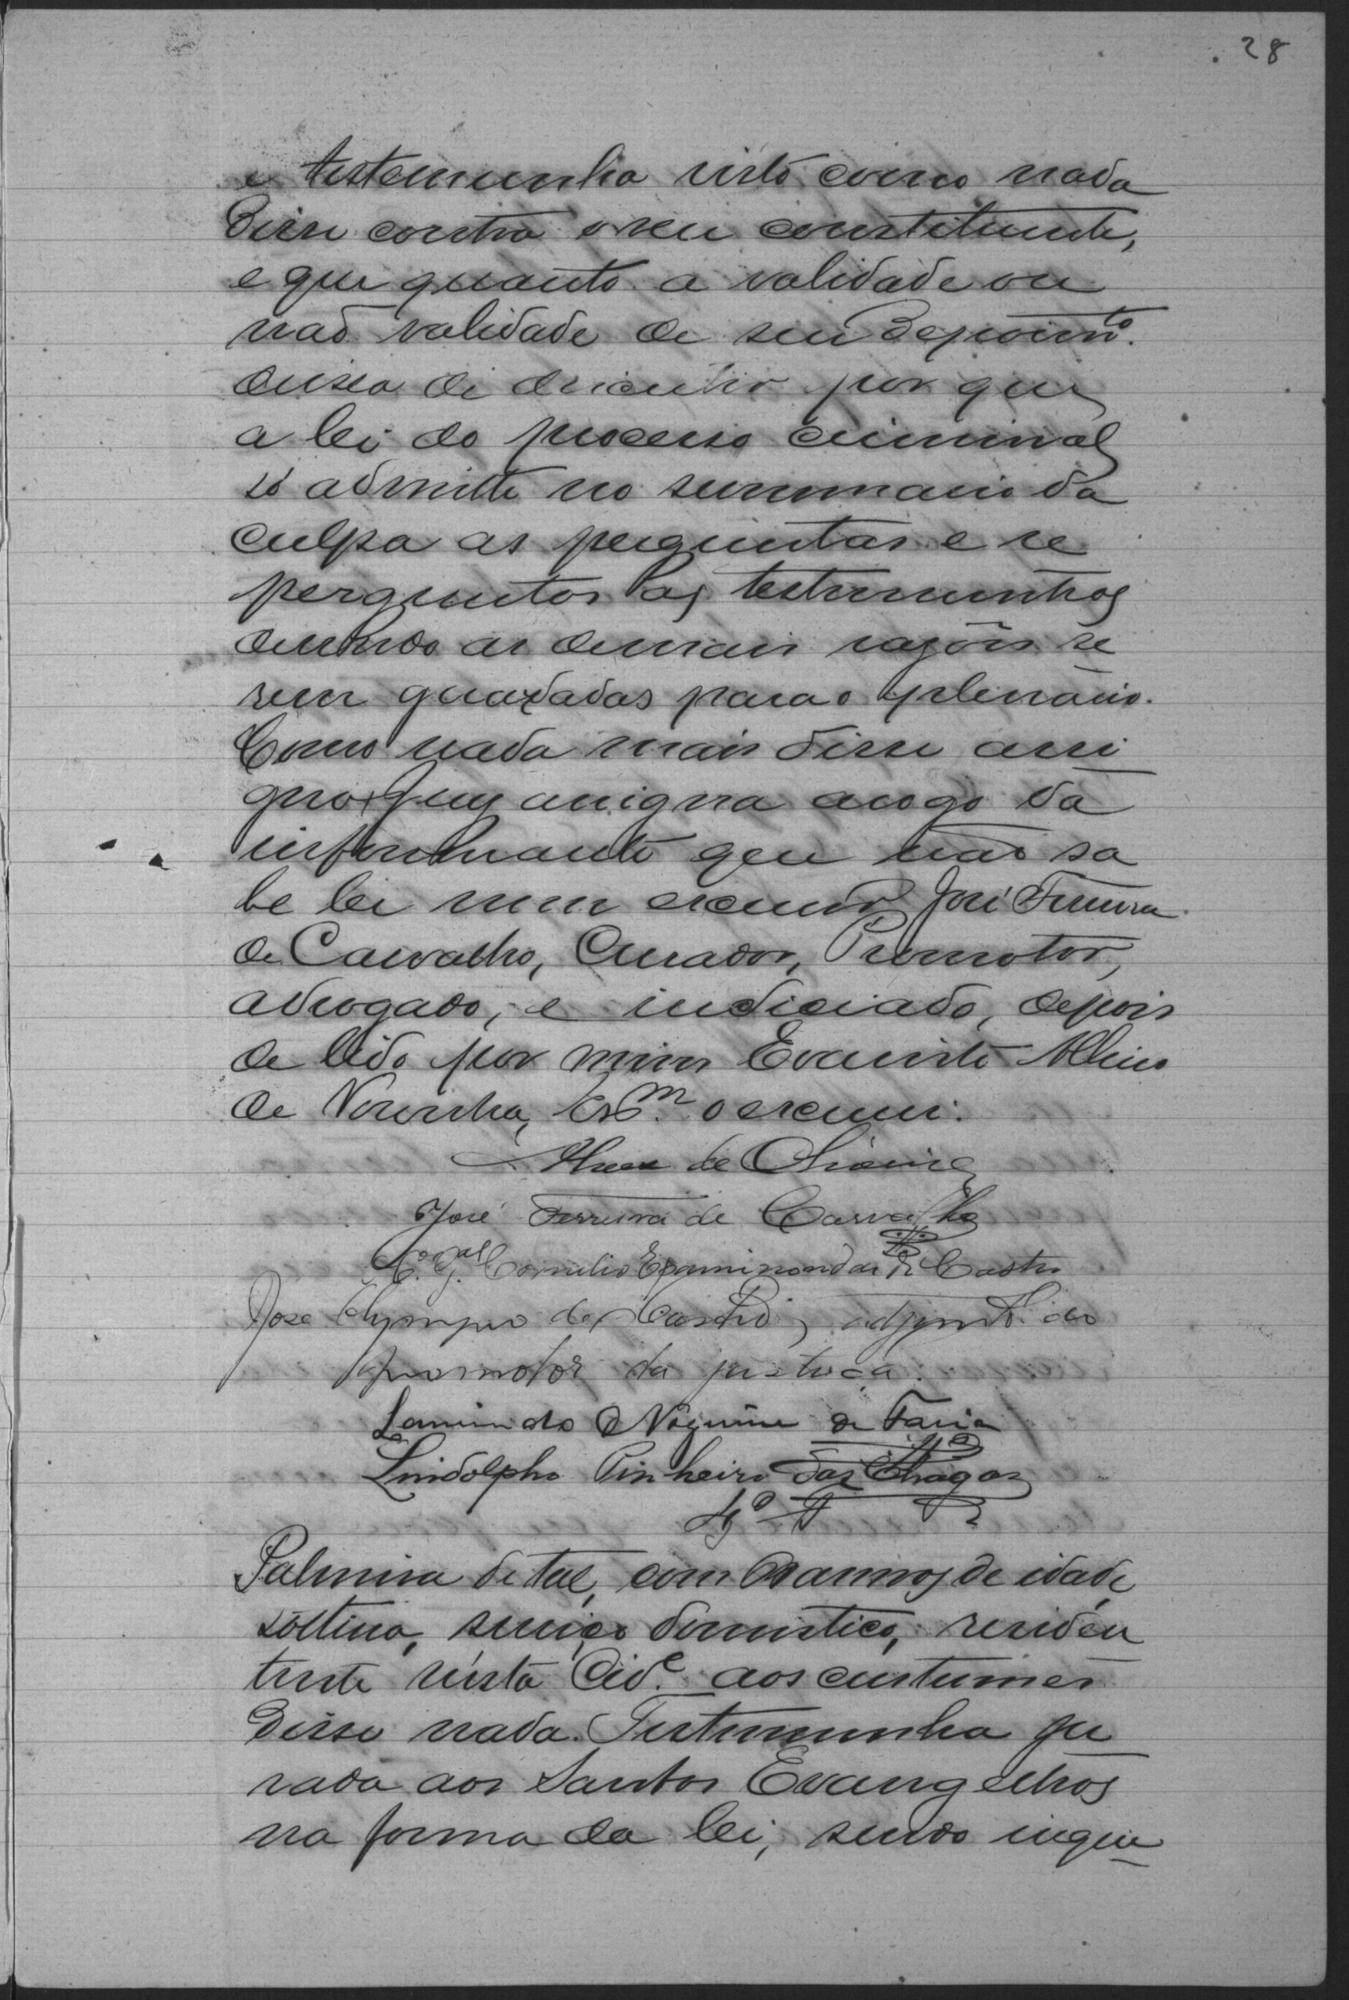 28
a testemunha visto como nada
disse contra o seu constituinte,
e que quanto a validade ou
não validade de seu depoimto.
deixa de discutir por que
a lei do processo criminal
só admitte no summario da
culpa as perguntas e re
perguntas as testemunhas
devendo as demais rasões se
rem guardadas para o plenario.
Como nada mais disse assi
gna o Juiz assigna a rogo da
informante que não sa
be ler nem escrever José Ferreira
de Carvalho, Curador, Promotor,
advogado, e indiciado, depois
de lido por mim Evaristo
de Noronha, Esm. o escrevi.
de Oliveira
José Ferreira de Carvalho
Cornelio Epaminondas de Castro
José Olympio de Castro, adjunto do
promotor da justiça.
Nogueira de Faria
Lindolpho Pinheiro das Chagas
4ª T
Palmira de tal, com annos de idade
solteira, serviço domestico, residen
tente nesta Cide. aos custumes
disse nada. Testemunha ju
rada aos Santos Evangelhos
na forma da lei, sendo inque